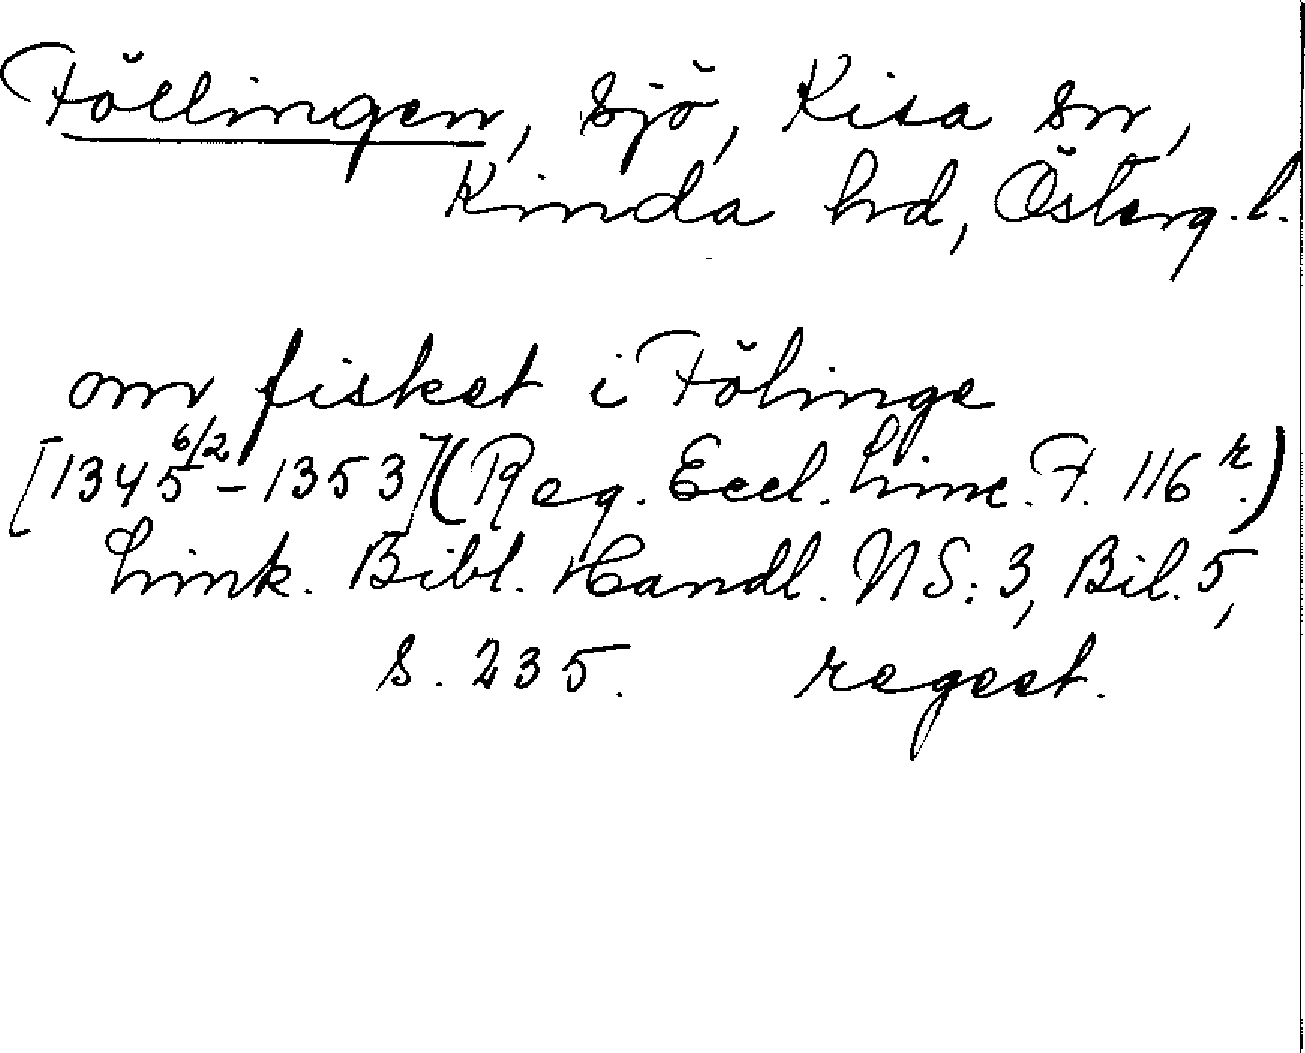 Föllingen, sjö, Kisa sn,
Kinda hd, Österg. l.
om fisket i Fölinge
[1345 6/2 - 1353] (Reg. Eccl. Linc. F. 116 r.)
Link. Bibl. Handl. NS: 3, Bil. 5,
s. 235. regest.